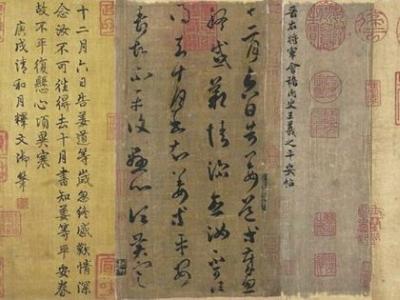 晉右將軍會稽內史王羲之平安帖
十二月六日告姜道等歲忽
終感歎情深念汝不可往
得去十月書知姜等平安
壽故不平復懸心頃異寒
十二月六日告姜道等歲忽終感歎情深
念汝不可往得去十月書知姜等平安壽
故不平復懸心頃異寒
庚戌清和月釋文御筆